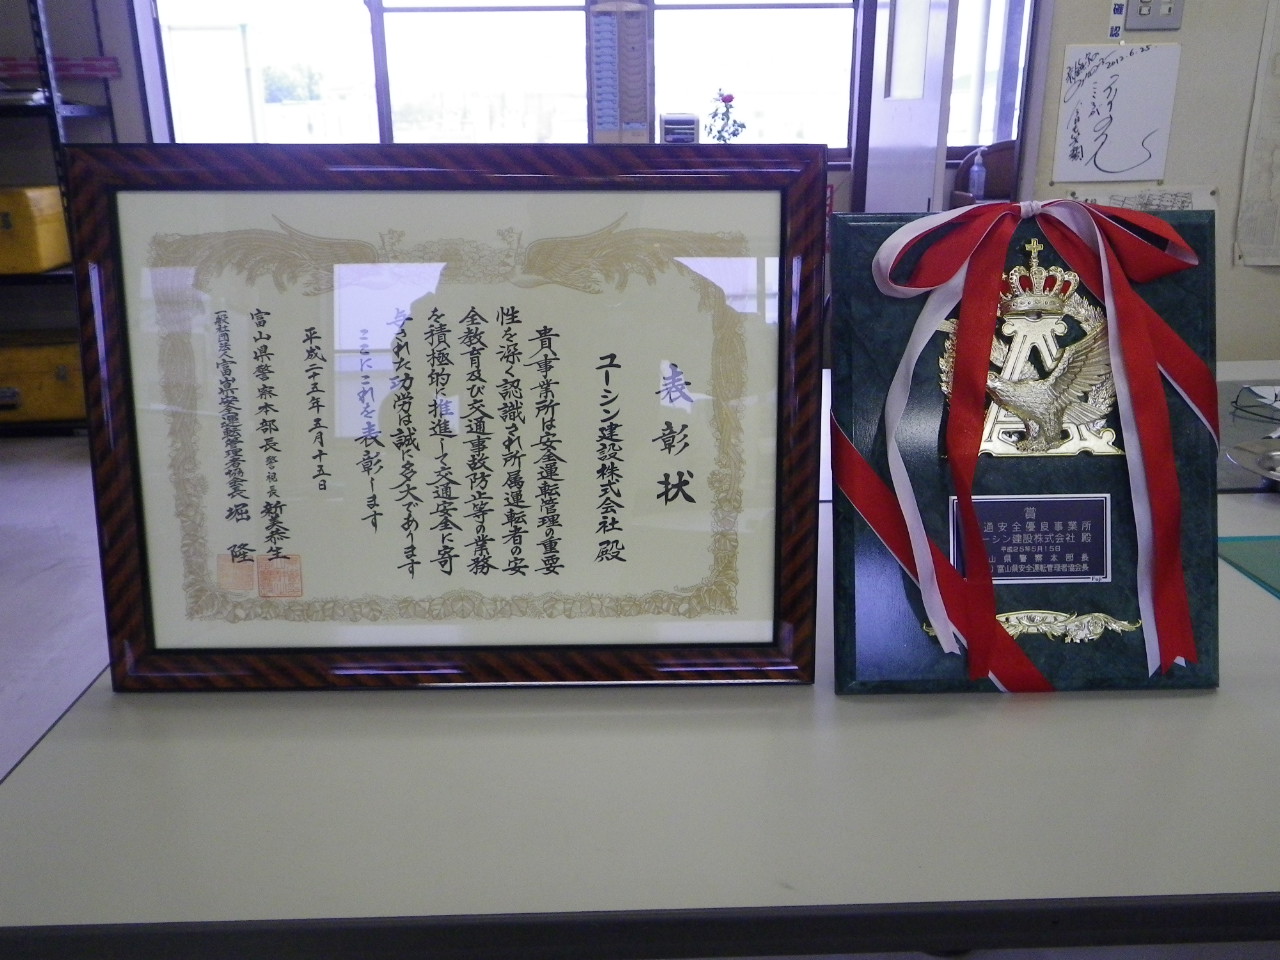 表彰状
ユーシン建設株式会社 殿
貴事業所は安全運転管理の重要
性を深く認識され所属運転者の安
全教育及び交通事故防止等の業務
を積極的に推進して交通安全に寄
与された功労は誠に多大であります
ここにこれを表彰します
平成二十五年五月十五日
富山県警察本部長 警視長 新美恭生
一般社団法人富山県安全運転管理者協会長 堀 隆
賞
通安全優良事業所
ーシン建設株式会社 殿
平成25年5月15日
山県警察本部長
富山県安全運転管理者協会長
2012.6.25
確認